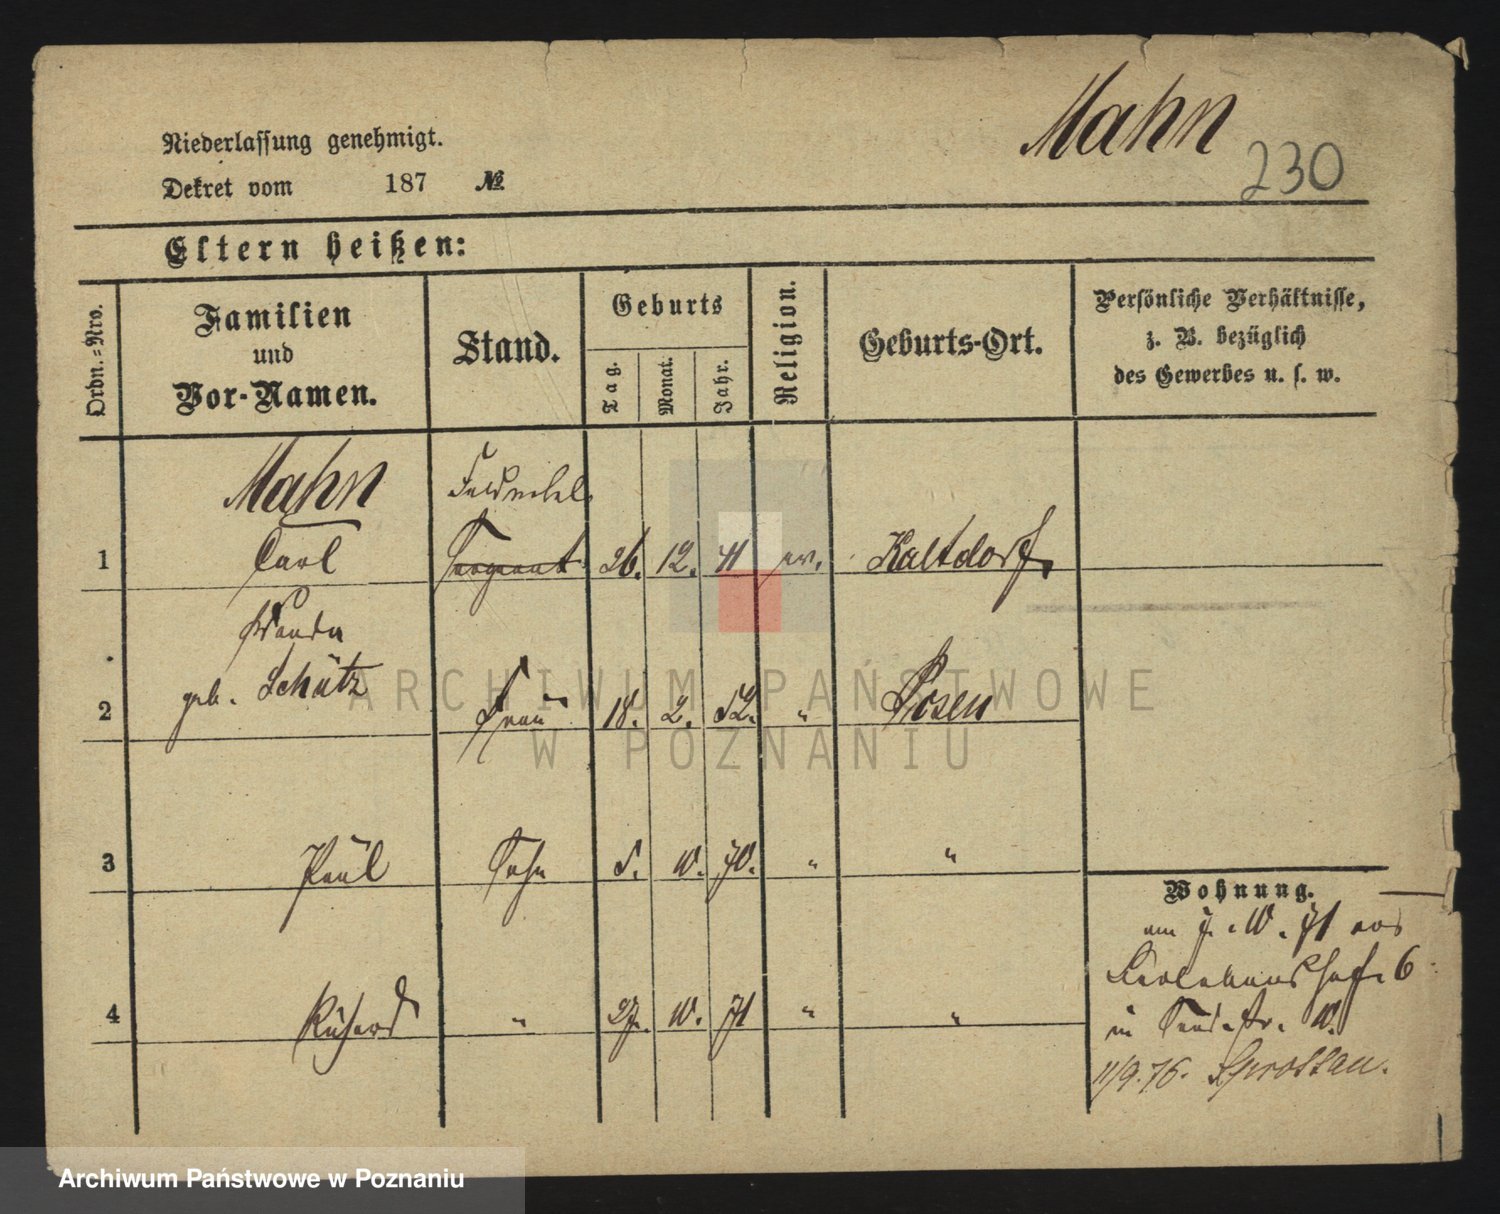 Mahn
230
Niederlassung genehmigt.
Dekret vom 187 №
Eltern heißen:
Ordn.=Nro.
Familien
und
Vor-Namen.
Stand.
Geburts
Tag.
Monat.
Jahr.
Religion.
Geburts-Ort.
Persönliche Verhältnisse,
z. B. bezüglich
des Gewerbes u. s. w.
Mahn
Feldwebel
1 Carl Sergeant 26. 12. 41 ev. Kaltdorf.
Wanda
geb. Schütz
2 Frau 18. 2. 52. " Posen
3 Paul Sohn 5. 10. 70. " "
4 Richard " 27. 10. 71 " "
Wohnung.
am 7. 10. 71 aus
6
in 10.
11/9.76. Sprottau.
ARCHIWUM PAŃSTWOWE
W POZNANIU
Archiwum Państwowe w Poznaniu